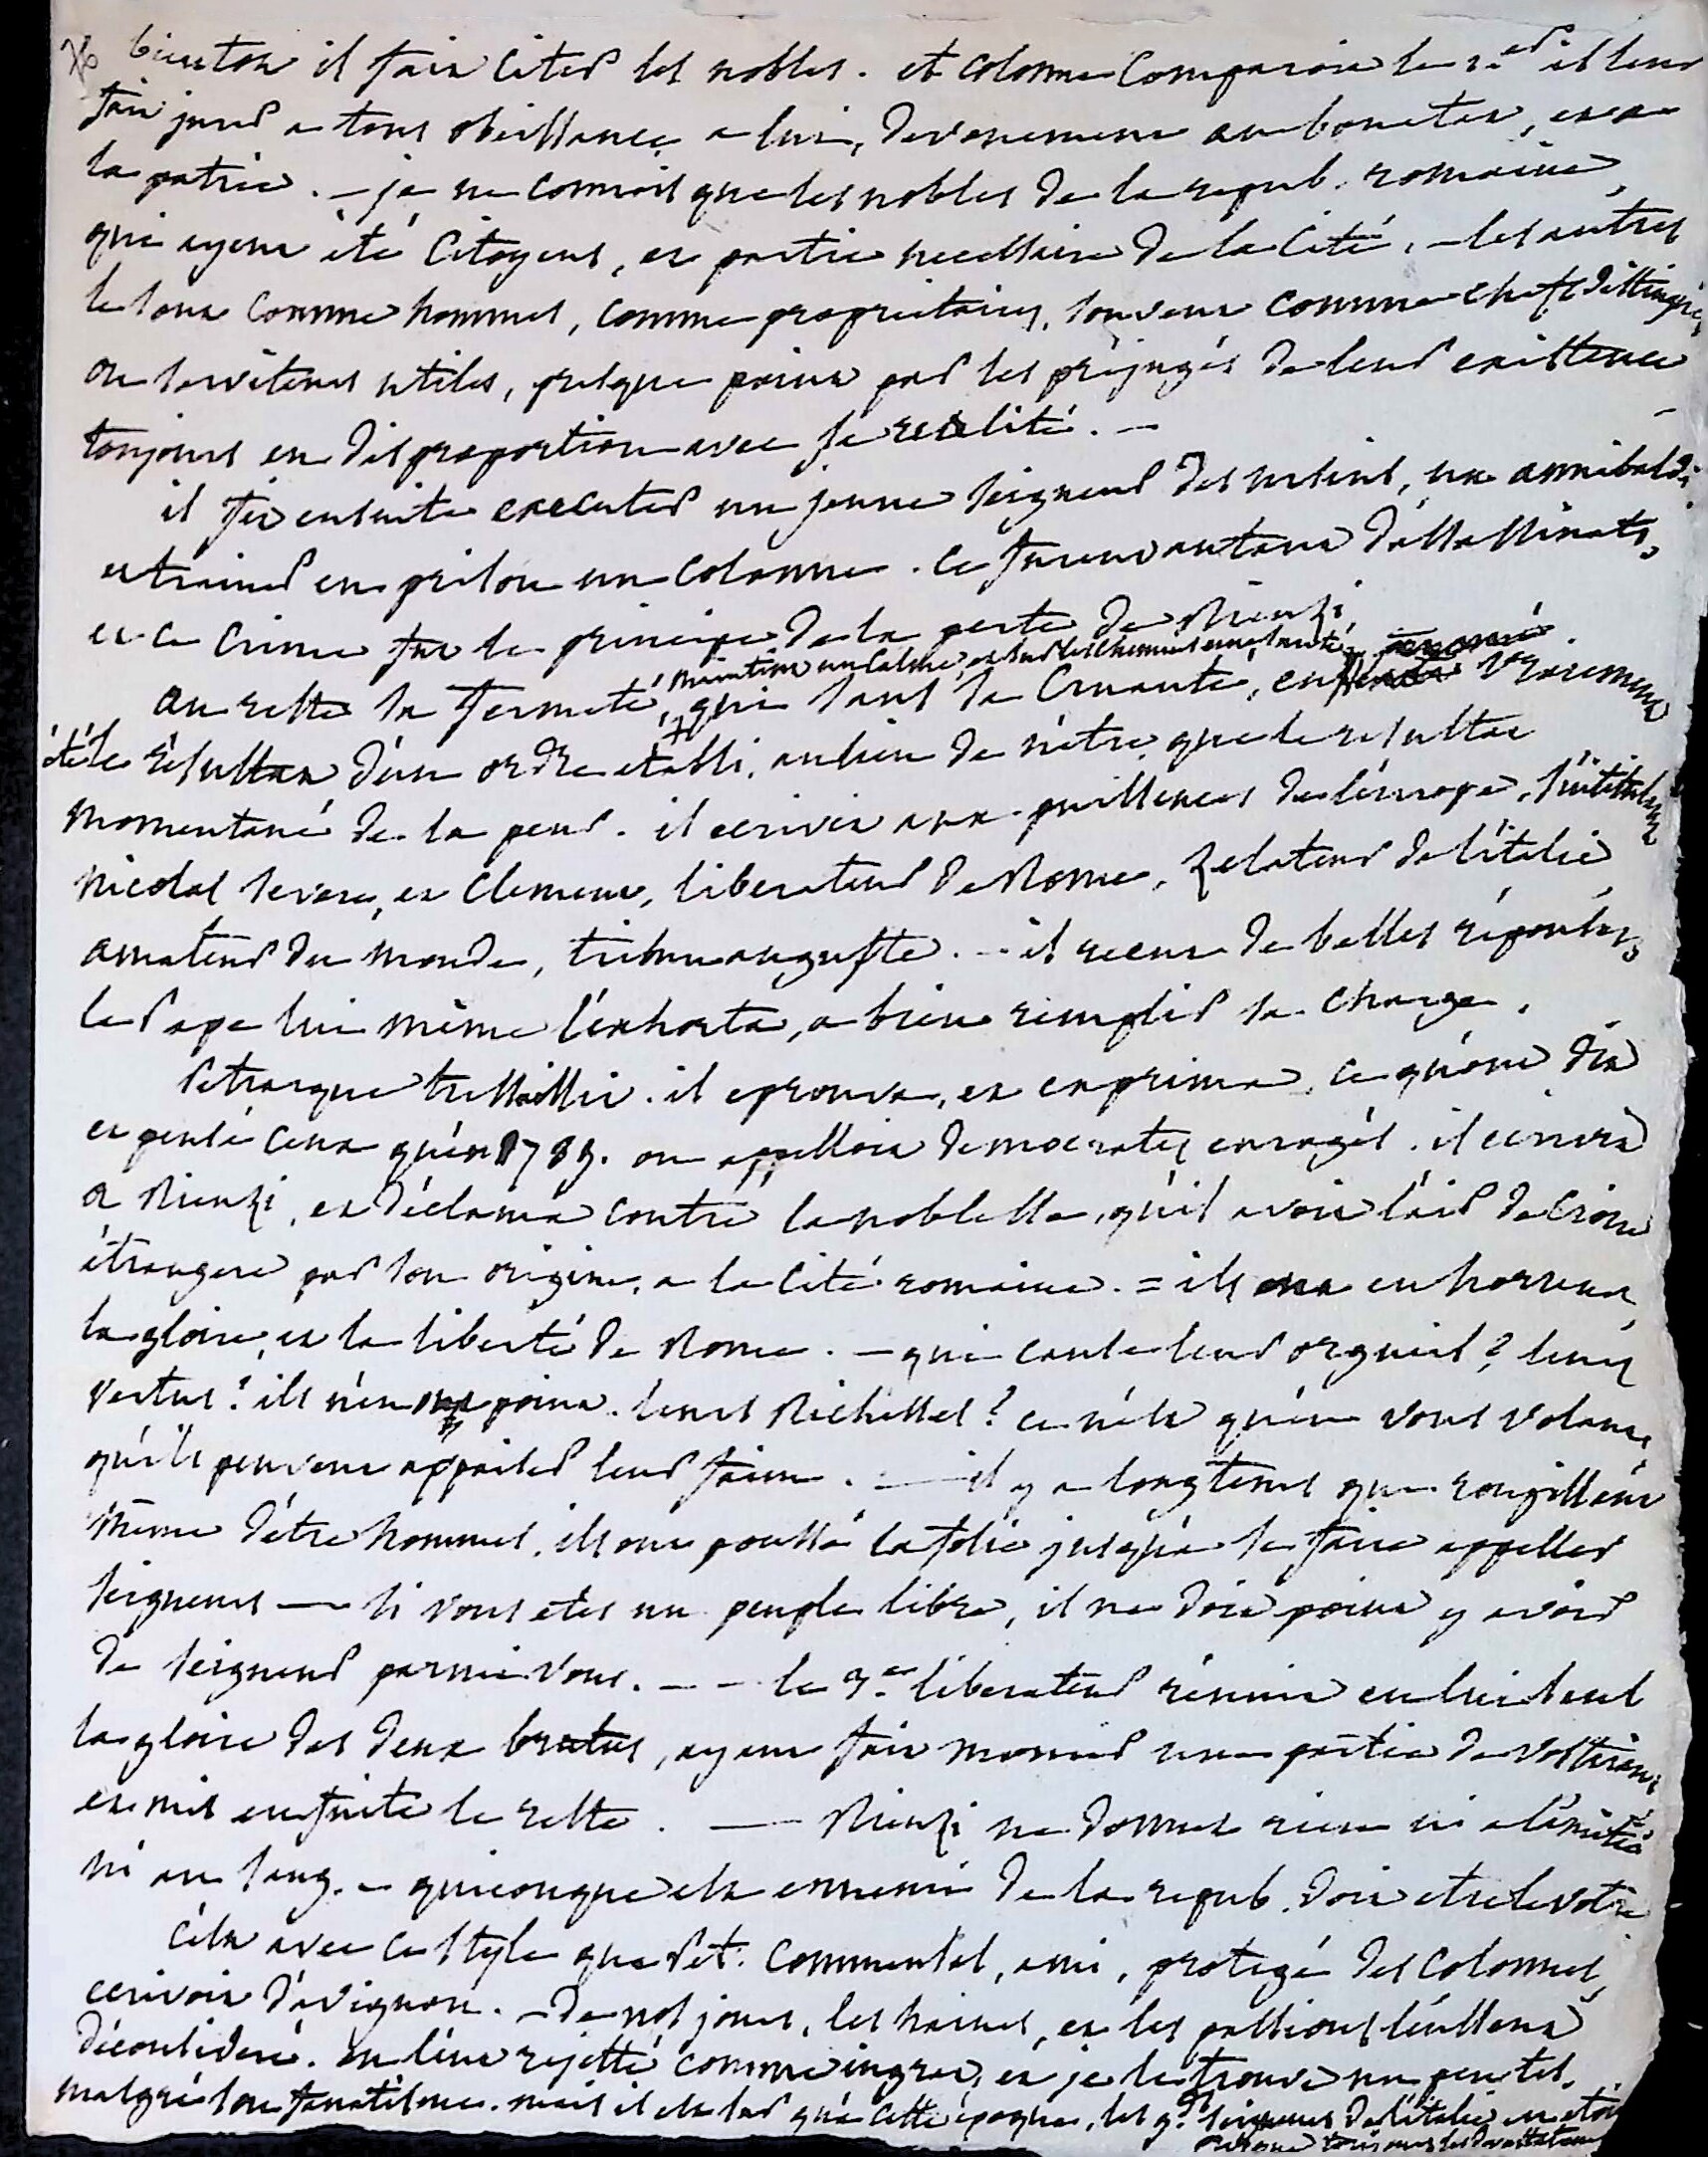 bientot il fait citer les nobles. et colonne comparoit le 1.er il leur
fait jurer a tous obeissance a lui, devouement au bonetat, et a
la patrie. – je ne connois que les nobles de la repub. romaine,
qui ayent été citoyens, et partie necessaire de la cité, – les autres
le sont comme hommes, comme proprietaires, souvent comme chefs distingués
ou serviteurs utiles, presque point par les préjugés de leur existence
toujours en disproportion avec sa realité. –
il fit ensuite executer un jeune seigneur des ursins, un annibaldi
et trainer en prison un colonne. ce furent autant d'assassinats,
et ce crime fut le principe de la perte de Rienzi
au reste la fermeté, qui sans la cruauté, en vraiment
maintint un calme, et sur les chemins une sureté
été le résultat d'un ordre etabli, au lieu de n'etre que le resultat
momentané de la peur. il ecrivit aux puissances de l'europe, s'intitulant
Nicolas severe, et clement, liberateur de Rome, zelateur de l'italie
amateur du monde, tribun auguste. – il recut de belles réponses
le Pape lui même l'exhorta, a bien remplir sa charge.
Petrarque tressaillit. il eprouva, et exprima, ce qu'ont dit
et pensé ceux qu'en 1789. on appelloit democrates enragés. il ecrivit
a Rienzi, et déclama contre la noblesse, qu'il avoit l'air de croire
étrangere par son origine, a la cité romaine. = ils ont en horreur,
la gloire, et la liberté de Rome. – qui cause leur orgueil? leurs
vertus? ils n'en ont point. leurs Richesses? ce n'est qu'en vous volant,
qu'ils peuvent appaiser leur faim. – il y a longtems que rougissant
même d'être hommes, ils ont poussé la folie jusqu'a se faire appeller
seigneurs — si vous etes un peuple libre, il ne doit point y avoir
de seigneur parmi vous. – – le 3.e liberateur réunit en lui seul
la gloire des deux brutus, ayant fait mourir une partie de vos tirans,
et mis en fuite le reste. — Rienzi ne donnés rien ni a l'amitié
ni au sang. – quiconque est ennemi de la repub. doit etre le votre
c'est avec ce style que Pet. commensal, ami, protegé des colonnes,
ecrivoit d'avignon. – de nos jours, les haines, et les passions l'eussent
déconsideré. on l'eut rejetté comme ingrat, et je le trouve un peu tel,
malgré son fanatisme. mais il est sur qu'a cette epoque, les g.ds seigneurs de l'italie en etoient